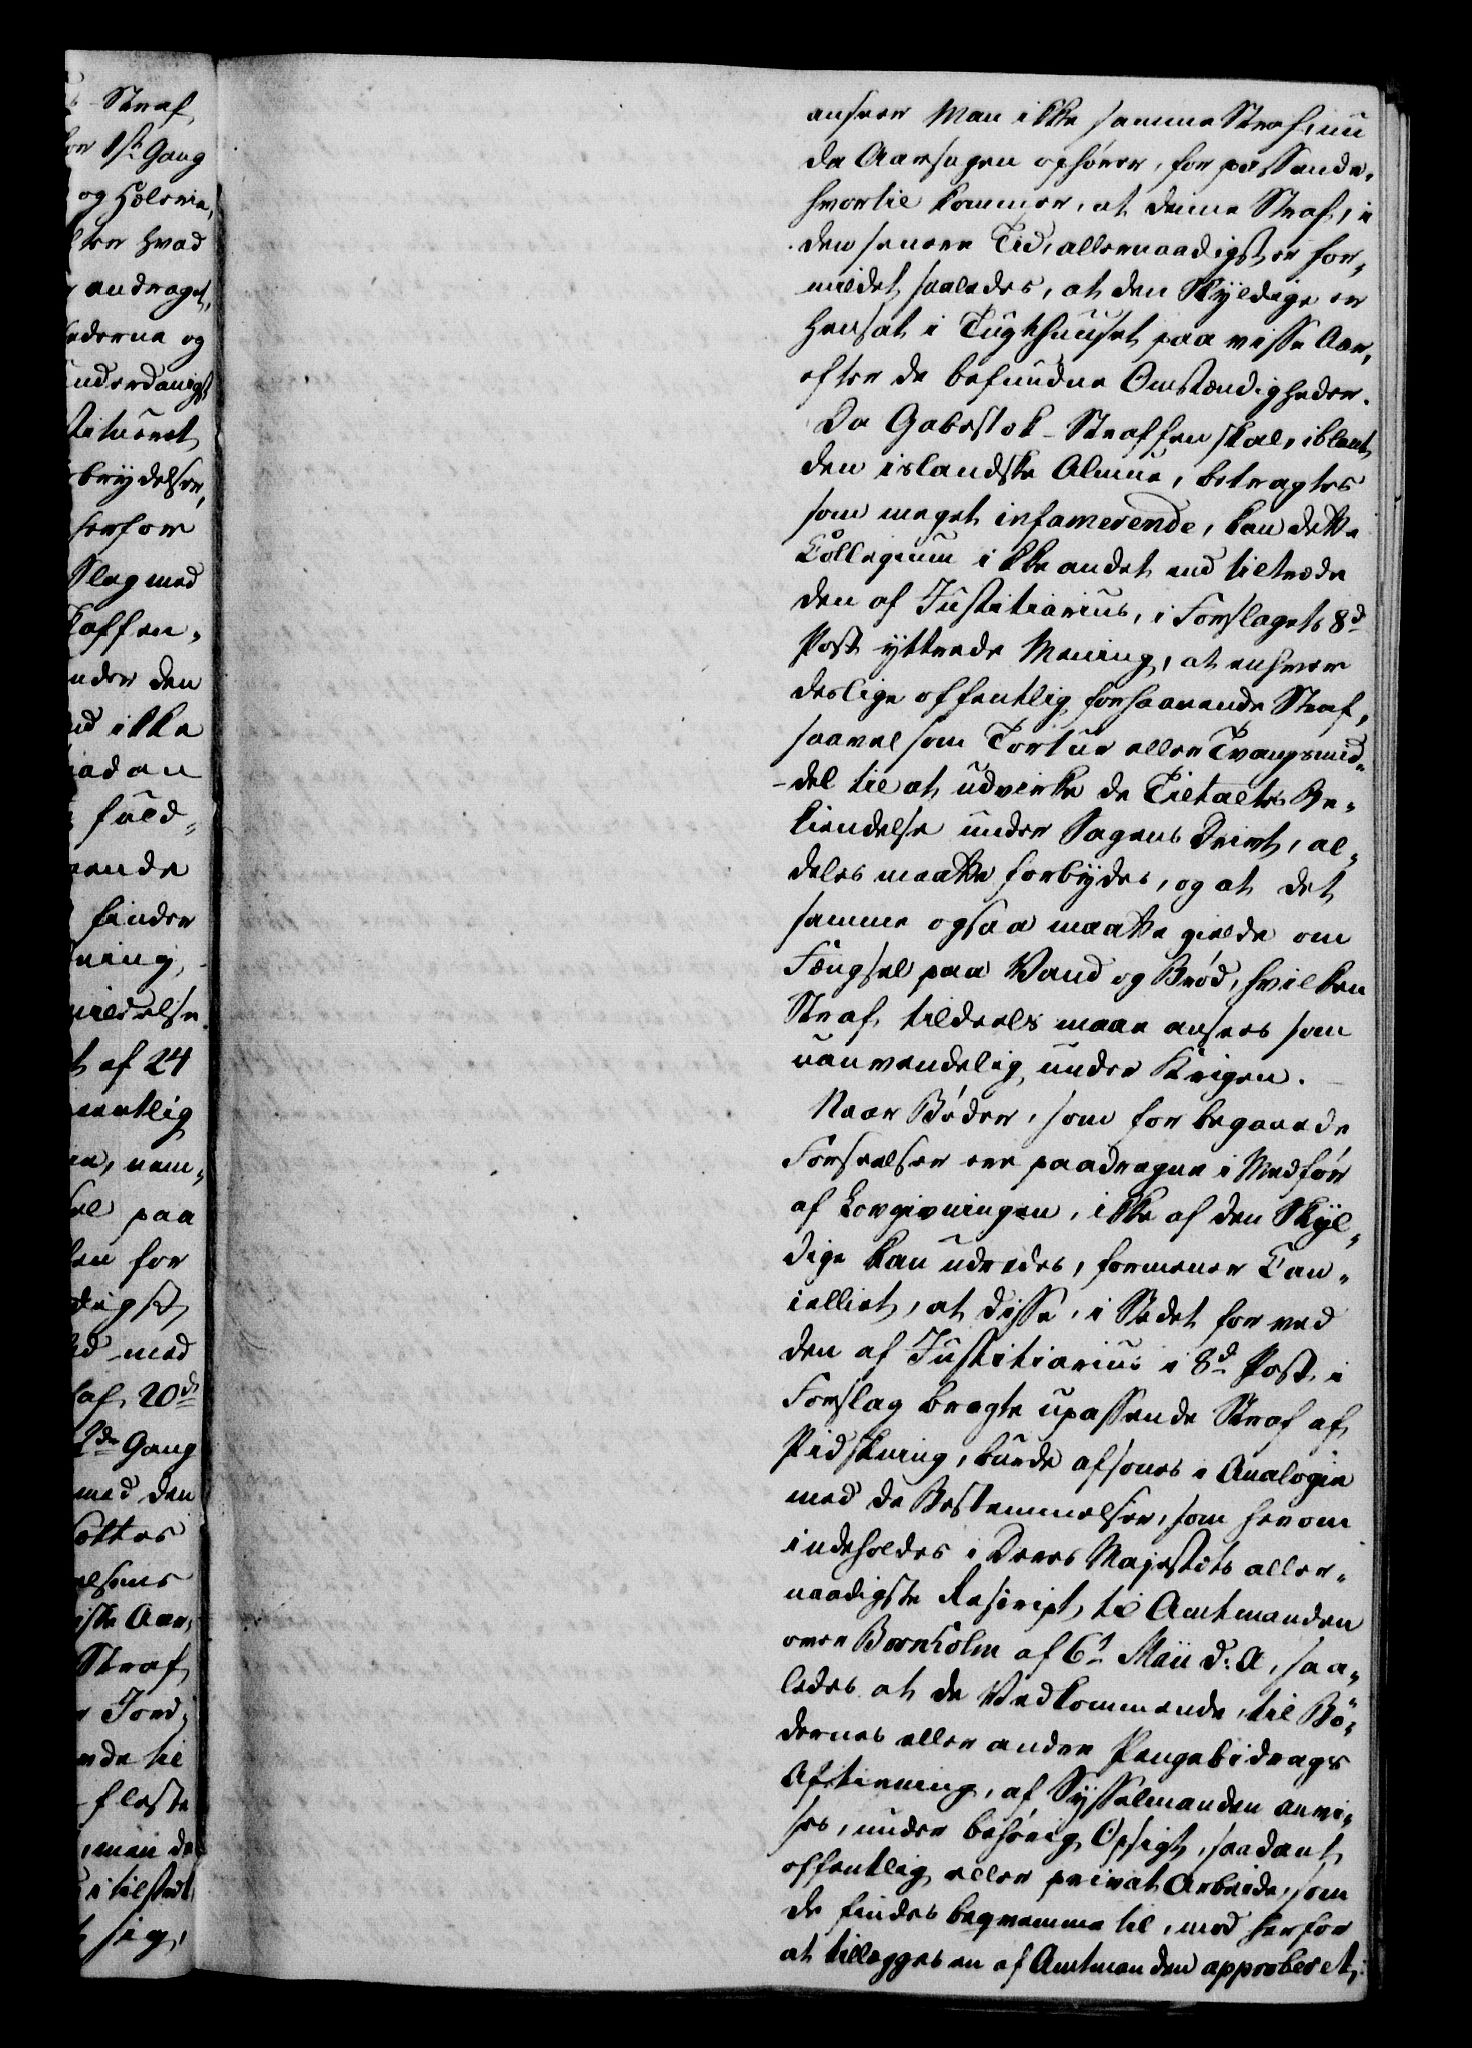 Straf
for 1ste Gang
og Hælerie,
hvad
andraget,
ederne og
underdanigst
stitueret
brydelser,
herfor
Slag med
Kaffen.
nder den
ud ikke
fuld-
ende
finder
ning,
mildelse
t af 24
mentlig
nem-
sel paa
for
digst
med
af 20de
2den Gang
med den
Aar,
Straf
Jord-
de til
fleste
men de
i tilstedt
sig,
anseer Man ikke samme Straf, nu
da Aarsagen ophører, for passende,
hvortil kommer, at denne Straf, i
den senere Tid, allernaadigst er for-
mildet saaledes, at den Skyldige er
hensat i Tugthuuset paa visse Aar,
efter de befundne Omstændigheder.
Da Gabestok-Straffen skal, iblant
den islandske Almue, betragtes
som meget infamerende, kan dette
Collegium ikke andet end tiltræde
den af Justitiarius, i Forslagets 8de
Post yttrede Mening, at enhver
deslige offentlig forhaanende Straf,
saavel som Tortur eller Tvangsmid-
del til at udvirke de Tiltaltes Be-
kiendelse under Sagens Drivt, al-
deles maatte forbydes, og at det
samme ogsaa maatte gielde om
Fængsel paa Vand og Brød, hvilken
Straf tildeels maae ansees som
uanvendelig under Krigen.
Naar Bøder, som for begaaede
Forseelser ere paadragne i Medfør
af Lovgivningen, ikke af den Skyl-
dige kan udredes, formener Can-
celliet, at disse, i Stedet for ved
den af Justitiarius i 8de Post i
Forslag bragte upassende Straf af
Pidskning, burde afsones i Analogie
med de Bestemmelser, som herom
indeholdes i Deres Majestæts aller-
naadigste Rescript til Amtmanden
over Bornholm af 6te Maii d: A, saa-
ledes at de Vedkommende, til Bø-
dernes eller anden Pengebidrags
Aftiening, af Sysselmanden anvi-
ses, under behørig Opsigt, saadant
offentlig eller privat Arbeide, som
de findes beqvemme til, mod herfor
at tillægges en af Amtmanden approberet,